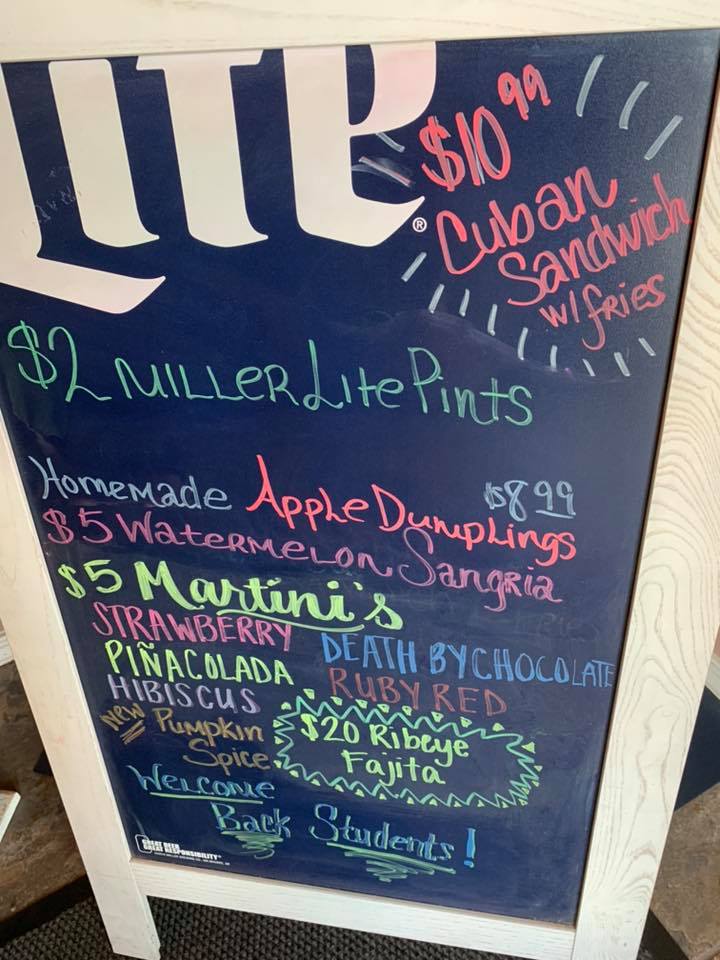 Lite®
$10.99
Cuban
Sandwich
w/ fries
$2 Miller Lite Pints
Homemade Apple Dumplings $8.99
$5 Watermelon Sangria
$5 Martini's
STRAWBERRY
DEATH BY CHOCOLATE
PIÑA COLADA
RUBY RED
HIBISCUS
New Pumpkin Spice
$20 Ribeye
Fajita
Welcome
Back Students!
GREAT BEER
GREAT RESPONSIBILITY®